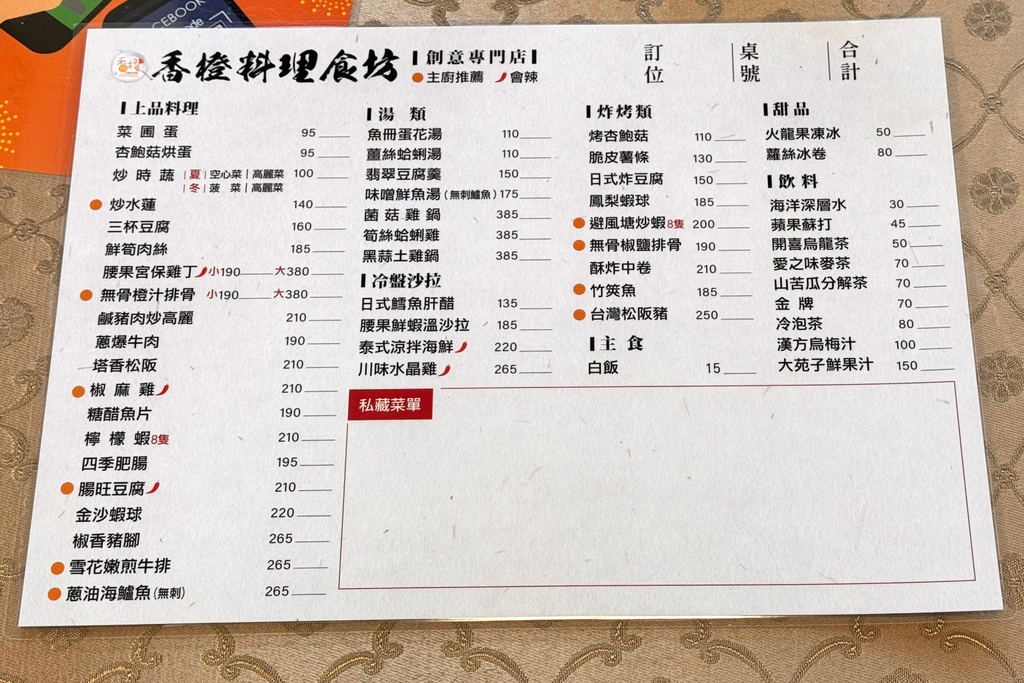 CEBOOK
香橙料理食坊
創意專門店
主廚推薦 會辣
訂位
桌號
合計
上品料理
菜圃蛋 95
杏鮑菇烘蛋 95
炒時蔬 |夏|空心菜|高麗菜 100
|冬|菠菜|高麗菜
炒水蓮 140
三杯豆腐 160
鮮筍肉絲 185
腰果宮保雞丁 小190 大380
無骨橙汁排骨 小190 大380
鹹豬肉炒高麗 210
蔥爆牛肉 190
塔香松阪 210
椒麻雞 210
糖醋魚片 190
檸檬蝦8隻 210
四季肥腸 195
腸旺豆腐 210
金沙蝦球 220
椒香豬腳 265
雪花嫩煎牛排 265
蔥油海鱸魚(無刺) 265
湯類
魚冊蛋花湯 110
薑絲蛤蜊湯 110
翡翠豆腐羹 150
味噌鮮魚湯(無刺鱸魚) 175
菌菇雞鍋 385
筍絲蛤蜊雞 385
黑蒜土雞鍋 385
冷盤沙拉
日式鱈魚肝醋 135
腰果鮮蝦溫沙拉 185
泰式涼拌海鮮 220
川味水晶雞 265
炸烤類
烤杏鮑菇 110
脆皮薯條 130
日式炸豆腐 150
鳳梨蝦球 185
避風塘炒蝦8隻 200
無骨椒鹽排骨 190
酥炸中卷 210
竹筴魚 185
台灣松阪豬 250
主食
白飯 15
甜品
火龍果凍冰 50
蘿絲冰卷 80
飲料
海洋深層水 30
蘋果蘇打 45
開喜烏龍茶 50
愛之味麥茶 70
山苦瓜分解茶 70
金牌 70
冷泡茶 80
漢方烏梅汁 100
大苑子鮮果汁 150
私藏菜單